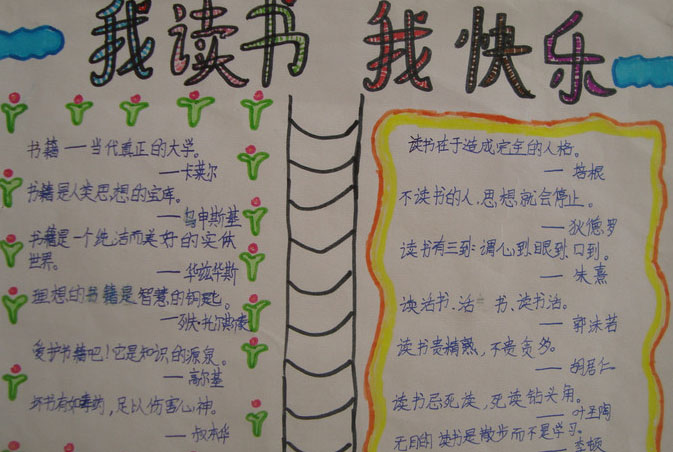 我读书 我快乐
书籍——当代真正的大学。
——卡莱尔
书籍是人类思想的宝库。
——乌申斯基
书籍是一个纯洁而美好的实体
世界。
——华兹华斯
理想的书籍是智慧的钥匙。
——列夫·托尔斯泰
爱护书籍吧!它是知识的源泉。
——高尔基
坏书有如毒药,足以伤害心神。
——叔本华
读书在于造成完全的人格。
——培根
不读书的人,思想就会停止。
——狄德罗
读书有三到:谓心到、眼到、口到。
——朱熹
读活书、活 书、读书活。
——郭沫若
读书贵精熟,不贵贪多。
——胡居仁
读书忌死读,死读钻头角。
——叶圣陶
无目的读书是散步而不是学习。
——李顿